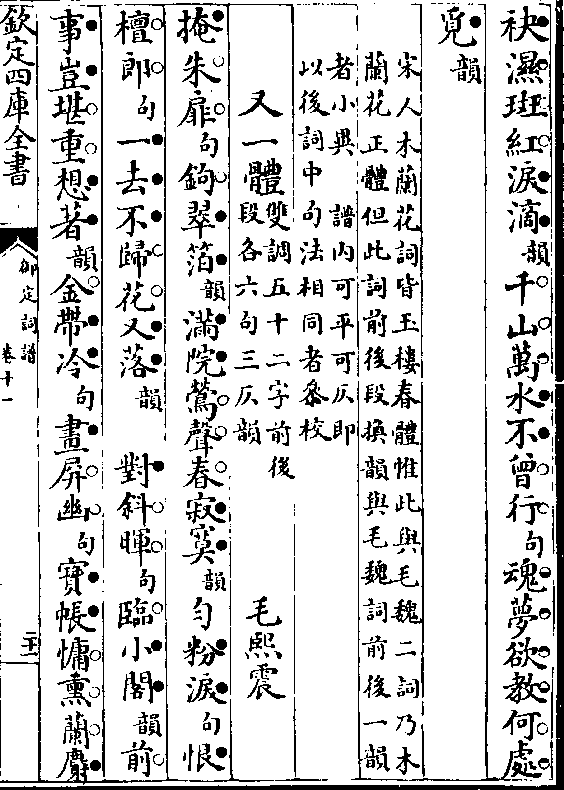 袂濕斑紅淚滴韻千山萬水不曾行句魂夢欲教何處
覓韻
宋人木蘭花詞皆玉樓春體惟此與毛魏二詞乃木
蘭花正體但此詞前後段換韻與毛魏詞前後一韻
者小異　譜内可平可仄即
以後詞中句法相同者叅校
又一體雙調五十二字前後段各六句三仄韻　毛熙震
掩朱扉句鉤翠箔韻滿院鶯聲春寂寞韻勻粉淚句恨
檀郎句一去不歸花又落韻　對斜暉句臨小閣韻前
事豈堪重想著韻金帶冷句畫屏幽句寶帳慵熏蘭麝
欽定四庫全書
御定詞譜
卷十一
二十一